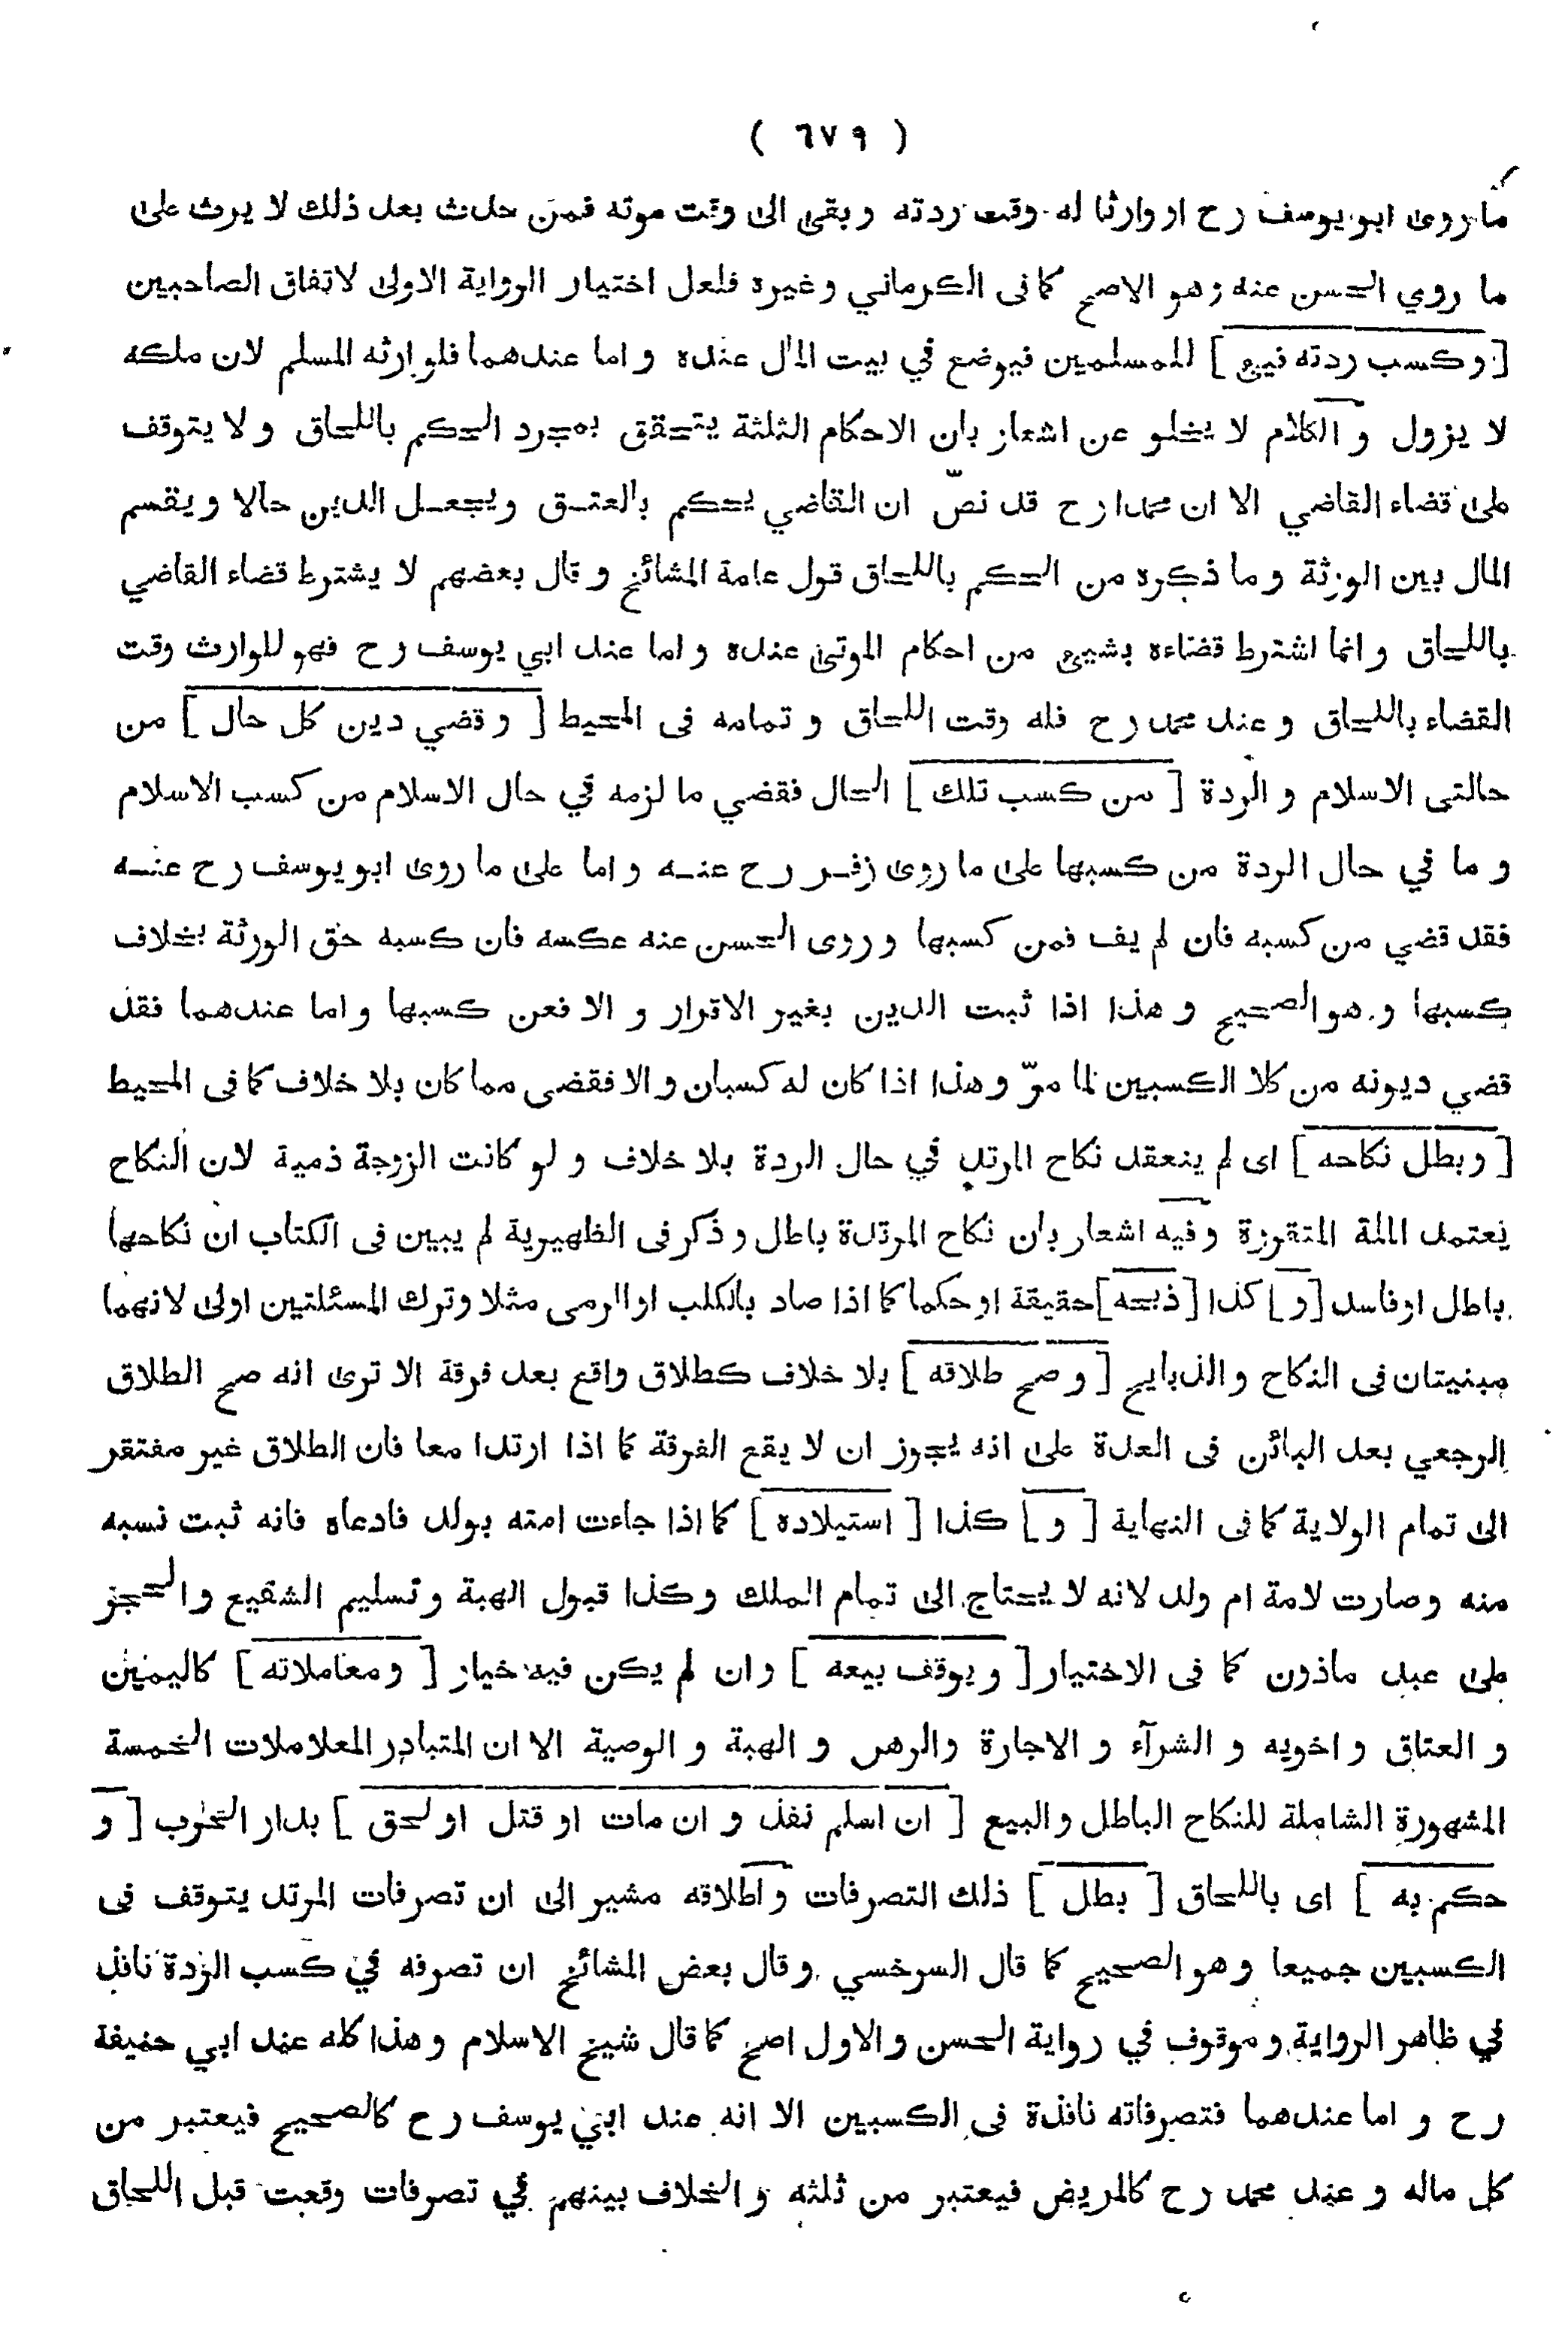 ( ٦٧٩ )
ما روى ابو يوسف رح او وارثا له وقت ردته و بقى الى وقت موته فمن حدث بعد ذلك لا يرث على
ما روي الحسن عنه وهو الاصح كما فى الكرماني وغيره فلعل اختيار الرواية الاولى لاتفاق الصاحبين
[ وكسب ردته فيئ ] للمسلمين فيوضع في بيت المال عنده و اما عندهما فلوارثه المسلم لان ملكه
لا يزول و الكلام لا يخلو عن اشعار بان الاحكام الثلثة يتحقق بمجرد الحكم باللحاق و لا يتوقف
على قضاء القاضي الا ان محمدا رح قد نصّ ان القاضي يحكم بالعتق ويجعل الدين حالا ويقسم
المال بين الورثة و ما ذكره من الحكم باللحاق قول عامة المشائخ و قال بعضهم لا يشترط قضاء القاضي
باللحاق و انما اشترط قضاءه بشيئ من احكام الموتى عنده و اما عند ابي يوسف رح فهو للوارث وقت
القضاء باللحاق و عند محمد رح فله وقت اللحاق و تمامه فى المحيط [ و قضي دين كل حال ] من
حالتى الاسلام و الردة [ من كسب تلك ] الحال فقضي ما لزمه في حال الاسلام من كسب الاسلام
و ما في حال الردة من كسبها على ما روى زفر رح عنه و اما على ما روى ابو يوسف رح عنه
فقد قضي من كسبه فان لم يف فمن كسبها و روى الحسن عنه عكسه فان كسبه حق الورثة بخلاف
كسبها و هو الصحيح و هذا اذا ثبت الدين بغير الاقرار و الا فعن كسبها و اما عندهما فقد
قضي ديونه من كلا الكسبين لما موّ و هذا اذا كان له كسبان و الا فقضى مما كان بلا خلاف كما فى المحيط
[ و بطل نكاحه ] اى لم ينعقد نكاح المرتد في حال الردة بلا خلاف و لو كانت الزوجة ذمية لان النكاح
يعتمد الملة المتقررة و فيه اشعار بان نكاح المرتدة باطل و ذكر فى الظهيرية لم يبين فى الكتاب ان نكاحها
باطل او فاسد [ و ] كذا [ ذبحه ] حقيقة او حكما كما اذا صاد بالكلب او الرمى مثلا و ترك المسئلتين اولى لانهما
مبنيتان فى النكاح و الذبايح [ و صح طلاقه ] بلا خلاف كطلاق واقع بعد فرقة الا ترى انه صح الطلاق
الرجعي بعد البائن فى العدة على انه يجوز ان لا يقع الفرقة كما اذا ارتدا معا فان الطلاق غير مفتقر
الى تمام الولاية كما فى النهاية [ و ] كذا [ استيلاده ] كما اذا جاءت امته بولد فادعاه فانه ثبت نسبه
منه و صارت لامة ام ولد لانه لا يحتاج الى تمام الملك و كذا قبول الهبة و تسليم الشفيع و الحجز
على عبد ماذون كما فى الاختيار [ و يوقف بيعه ] و ان لم يكن فيه خيار [ و معاملاته ] كاليمين
و العتاق و اخويه و الشرآء و الاجارة والرهن و الهبة و الوصية الا ان المتبادر المعلاملات الخمسة
المشهورة الشاملة للنكاح الباطل و البيع [ ان اسلم نفذ و ان مات او قتل او لحق ] بدار الحرب [ و
حكم به ] اى باللحاق [ بطل ] ذلك التصرفات و اطلاقه مشير الى ان تصرفات المرتد يتوقف فى
الكسبين جميعا و هو الصحيح كما قال السرخسي و قال بعض المشائخ ان تصرفه في كسب الردة نافذ
في ظاهر الرواية و موقوف في رواية الحسن و الاول اصح كما قال شيخ الاسلام و هذا كله عند ابي حنيفة
رح و اما عندهما فتصرفاته نافذة فى الكسبين الا انه عند ابي يوسف رح كالصحيح فيعتبر من
كل ماله و عند محمد رح كالمريض فيعتبر من ثلثه و الخلاف بينهم في تصرفات وقعت قبل اللحاق